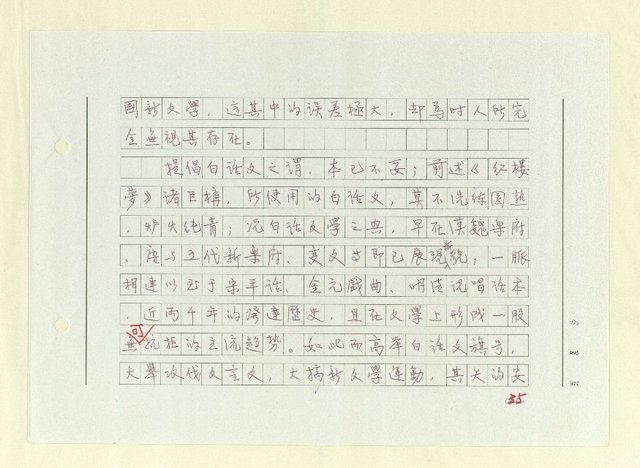 國新文學，這其中的误差極大，却為时人所完
全無視其存在。
提倡白话文之谓，本已不妥；前述《红樓
夢》诸巨構，所使用的白话文，莫不洗练圆熟
，炉火纯青；况白话文學之興，早在漢魏樂府
、唐与五代新樂府、变文等即已展现新貌；一脈
相連以至于宋平话、金元戲曲、明清说唱话本
，近两千年的發達歷史，且在文學上形成一股
無可抗拒的主流趋势。如此而高举白话文旗号，
大舉攻伐文言文，大搞新文學運動，其大的安
35